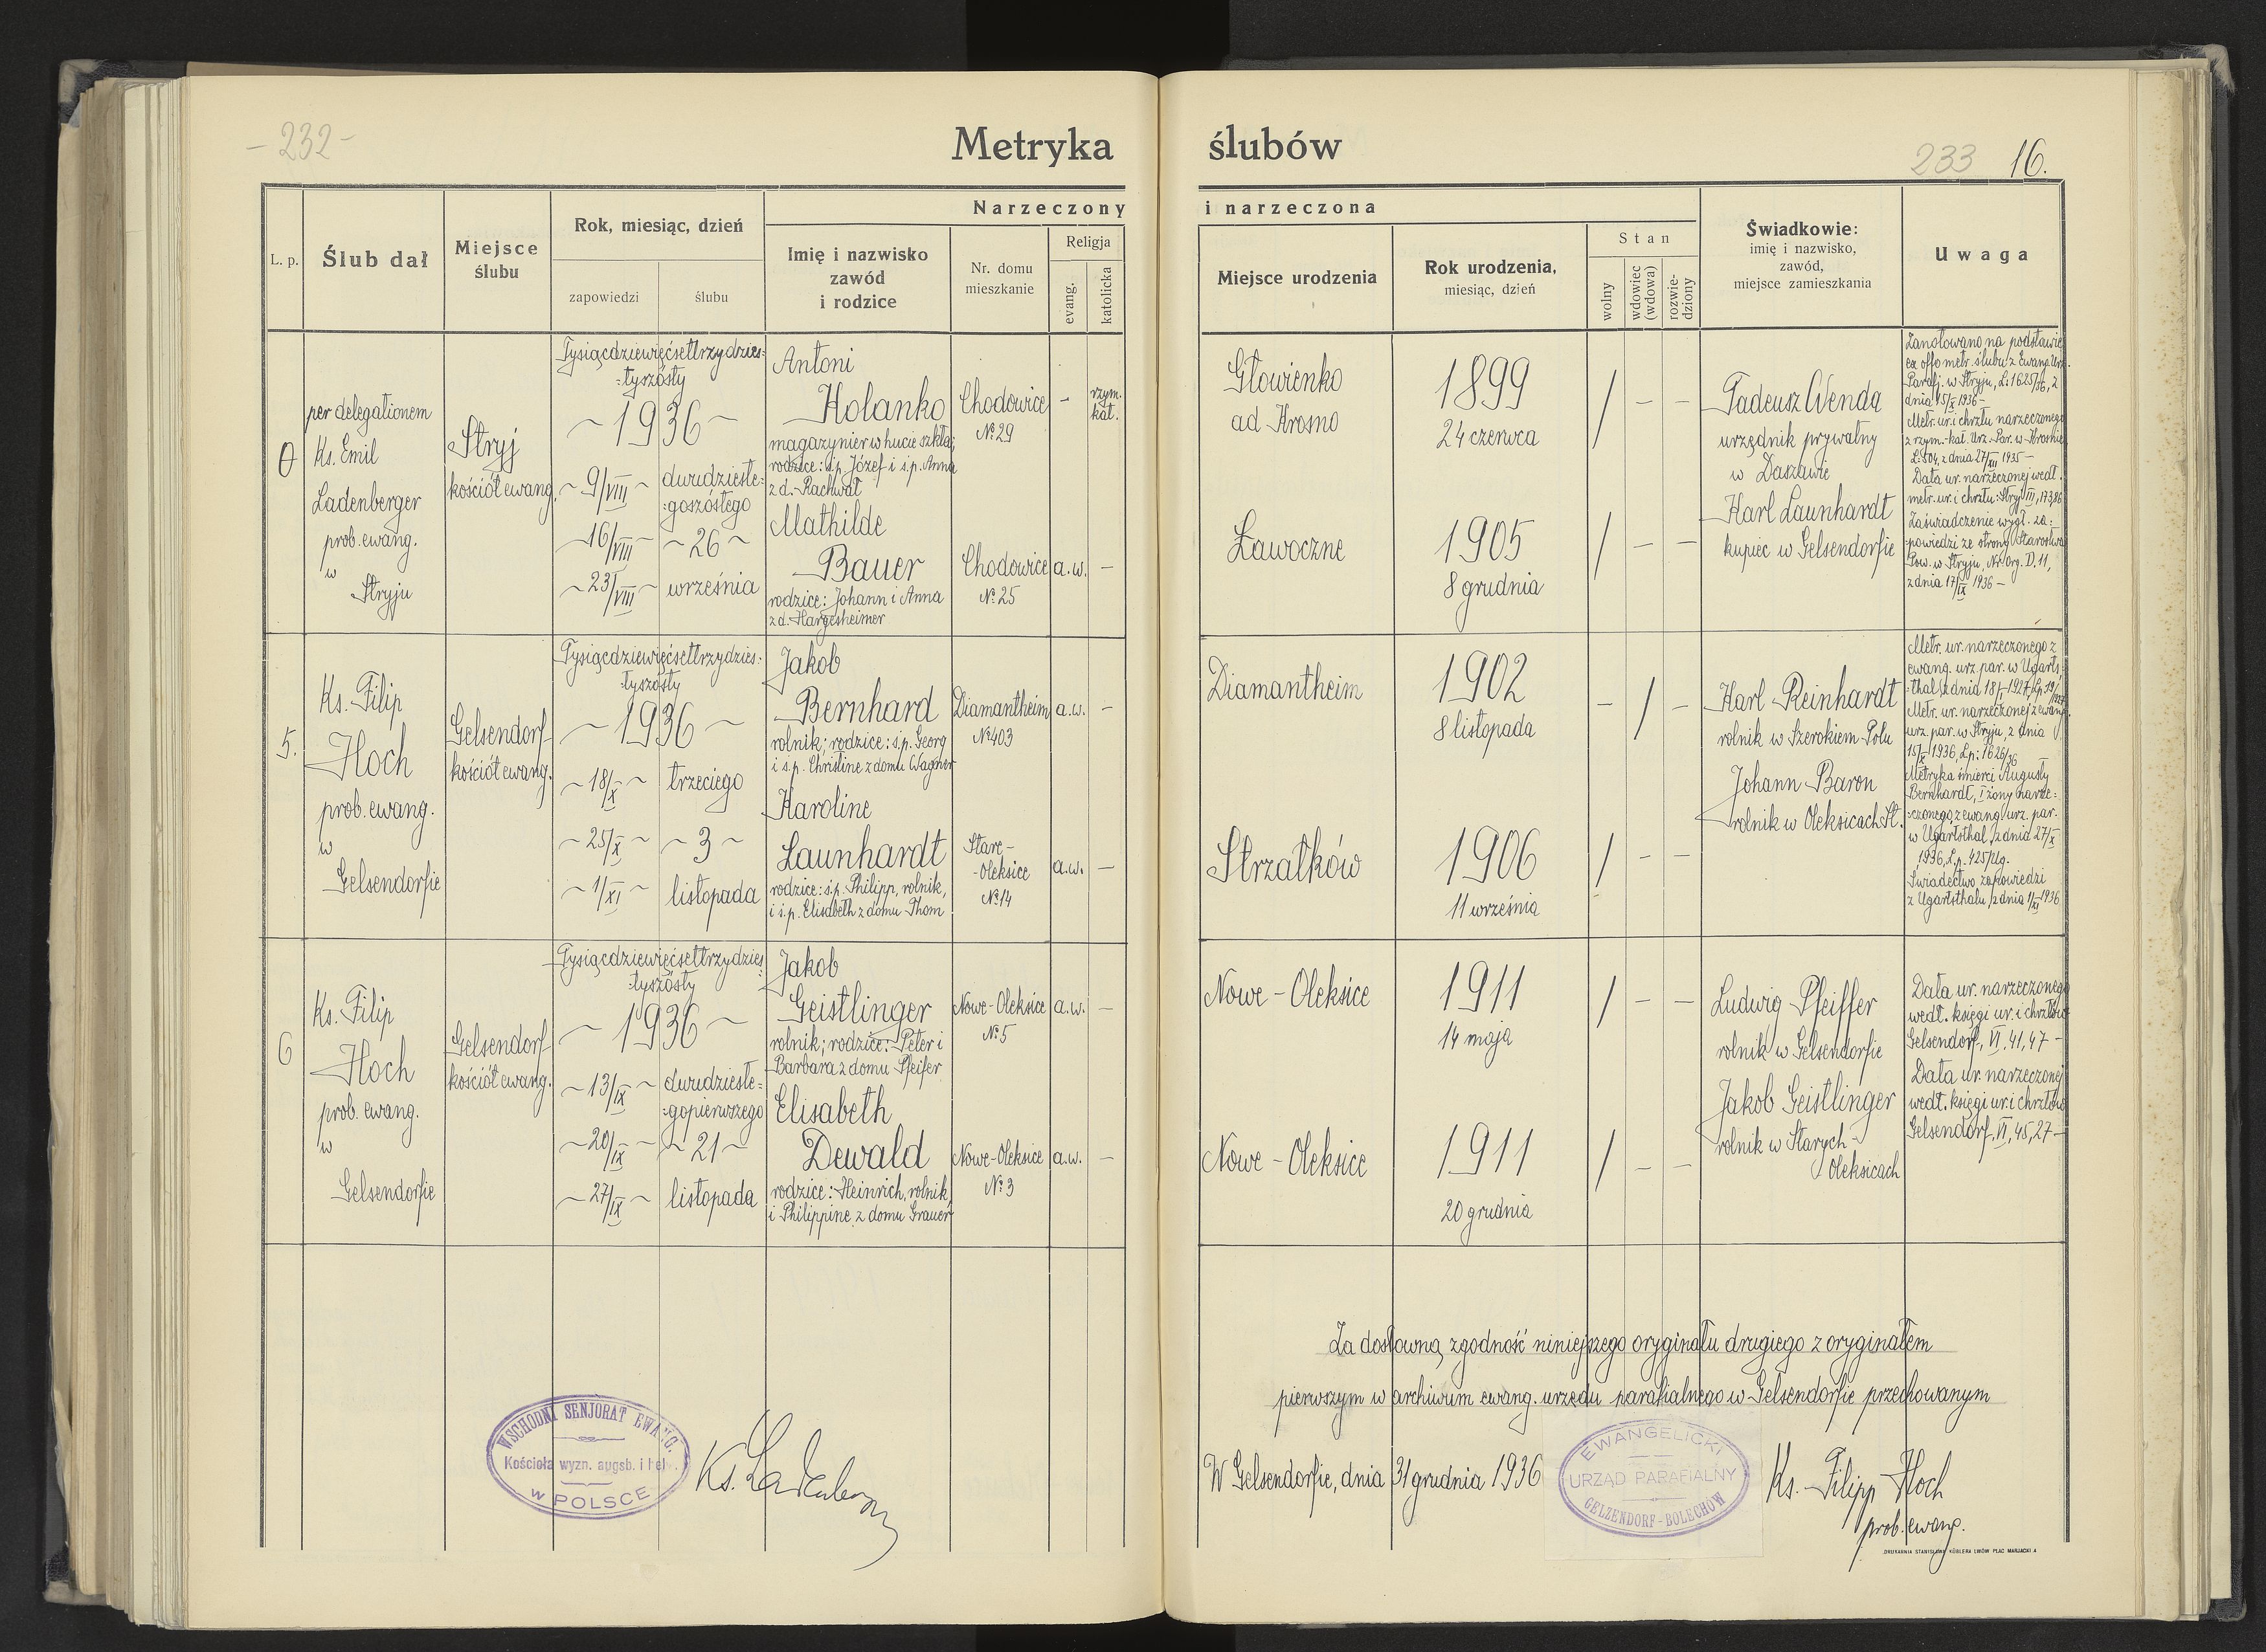 - 232 -
Metryka ślubów
233 16.
Narzeczony i narzeczona
L. p.
Ślub dał
Miejsce
ślubu
Rok, miesiąc, dzień
zapowiedzi
ślubu
Imię i nazwisko
zawód
i rodzice
Nr. domu
mieszkanie
Religja
evang.
katolicka
Miejsce urodzenia
Rok urodzenia,
miesiąc, dzień
Stan
wolny
wdowiec
(wdowa)
rozwie-
dziony
Świadkowie:
imię i nazwisko,
zawód,
miejsce zamieszkania
Uwaga
0
per delegationem
Ks. Emil
Ladenberger
prob. ewang.
w
Stryju
Stryj
kościół ewang.
Tysiącdziewięćsettrzydzies:
:tyszósty
~ 1936 ~
~ 9/VIII ~
~ 16/VIII ~
~ 23/VIII ~
dwudzieste:
:goszóstego
~ 26 ~
września
Antoni
Holanko
magazynier w hucie szkła;
rodzice: ś.p. Józef i ś.p. Anna
z d. Rachwał
Chodowice
№ 29
-
rzym.
kat.
Mathilde
Bauer
rodzice: Johann i Anna
z d. Hargesheimer
Chodowice
№ 25
a.w.
-
Głowienko
ad Krosno
1899
24 czerwca
/ - -
Ławoczne
1905
8 grudnia
/ - -
Tadeusz Wenda
urzędnik prywatny
w Daszawie
Karl Launhardt
kupiec w Gelsendorfie
Zanotowano na podstawie
ex offo metr. ślubu z Ewang. Urz.
Parafj. w Stryju, L: 1625/36, z
dnia 15/X 1936 -
Metr. ur. i chrztu narzeczonego
z rzym.-kat. Urz. Par. w Krośnie
L: 504, z dnia 27/XII 1935 -
Data ur. narzeczonej wedł.
metr. ur. i chrztu: Stryj III, 173,86
Zaświadczenie wygł. za:
:powiedzi ze strony Starostwa
Pow. w Stryju, Nr. Org. D. 11,
z dnia 17/IX 1936 -
5.
Ks. Filip
Hoch
prob. ewang.
w
Gelsendorfie
Gelsendorf
kościół ewang.
Tysiącdziewięćsettrzydzies:
:tyszósty
~ 1936 ~
~ 18/X ~
~ 25/X ~
~ 1/XI ~
trzeciego
~ 3 ~
listopada
Jakob
Bernhard
rolnik; rodzice: ś.p. Georg
i ś.p. Christine z domu Wagner
Diamantheim
№ 403
a.w.
-
Karoline
Launhardt
rodzice: ś.p. Philipp, rolnik,
i ś.p. Elisabeth z domu Thom
Stare-
-Oleksice
№ 14
a.w.
-
Diamantheim
1902
8 listopada
- / -
Strzałków
1906
11 września
/ - -
Karl Reinhardt
rolnik w Szerokiem-Polu
Johann Baron
rolnik w Oleksicach St.
Metr. ur. narzeczonego z
ewang. urz. par. w Ugarts:
Metr. ur. narzeczonej z ewang.
urz. par. w Stryju, z dnia
15/X 1936, Lp: 1626/36
Metryka śmierci Augusty
Bernhardt, I żony narze:
:czonego z ewang. urz. par.
w Ugartsthal, z dnia 27/X
1936, L.p. 425/Ug.
Świadectwo zapowiedzi
z Ugartsthalu, z dnia 1/XI 1936
6
Ks. Filip
Hoch
prob. ewang.
w
Gelsendorfie
Gelsendorf
kościół ewang.
Tysiącdziewięćsettrzydzies:
:tyszósty
~ 1936 ~
~ 13/IX ~
~ 20/IX ~
~ 27/IX ~
dwudzieste:
:gopierwszego
~ 21 ~
listopada
Jakob
Geistlinger
rolnik; rodzice: Peter i
Barbara z domu Pfeifer
Nowe-Oleksice
№ 5
a.w.
-
Elisabeth
Dewald
rodzice: Heinrich, rolnik,
i Philippine z domu Grauer
Nowe-Oleksice
№ 3
a.w.
-
Nowe - Oleksice
1911
14 maja
/ - -
Nowe - Oleksice
1911
20 grudnia
/ - -
Ludwig Pfeiffer
rolnik w Gelsendorfie
Jakob Geistlinger
rolnik w Starych-
Oleksicach
Data ur. narzeczonego
wedł. księgi ur. i chrztów
Gelsendorf, VI, 41, 47 -
Data ur. narzeczonej
wedł. księgi ur. i chrztów
Gelsendorf, VI, 45, 27 -
Za dosłowną zgodność niniejszego oryginału drugiego z oryginałem
pierwszym w archiwum ewang. urzędu parafialnego w Gelsendorfie przechowanym
W Gelsendorfie, dnia 31 grudnia 1936
WSCHODNI SENJORAT EWANG.
Kościoła wyzn. augsb. i hel.
w POLSCE
Ks. Ladenberger
EWANGELICKI
URZĄD PARAFIALNY
GELZENDORF-BOLECHÓW
Ks. Filipp Hoch
prob. ewang.
DRUKARNIA STANISŁAWA KÖBLERA LWÓW PLAC MARJACKI 4